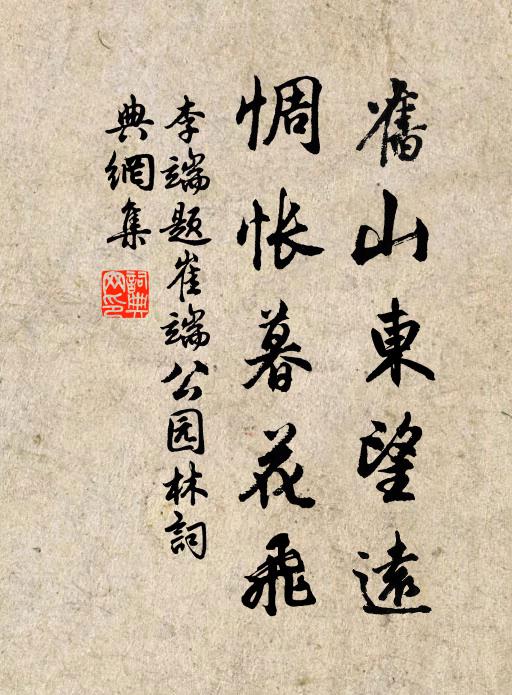 舊山東望遠
惆怅暮花飛
李端題崔端公园林詞
典網集
詞典
网印